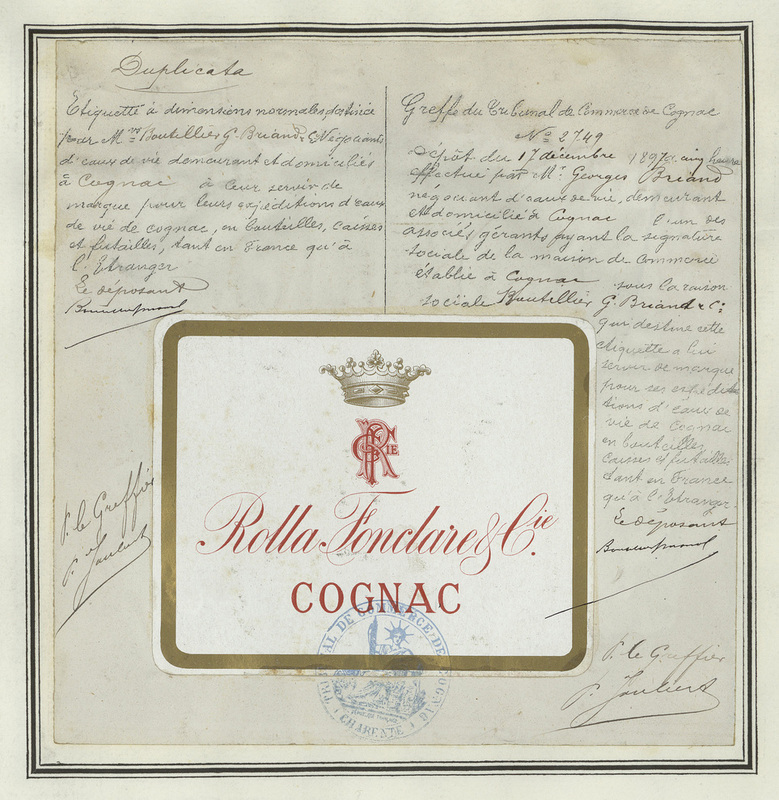 Duplicata
Etiquette à dimensions normales, destinée
par Mrs Boutellier G. Briand & Cie Négociants
d'eaux de vie demeurant et domiciliés
à Cognac à leur servir de
marque pour leurs expéditions d'eaux
de vie de cognac, en bouteilles, caisses
et futailles, tant en France qu'à
l'Etranger
Le déposant
Greffe du Tribunal de Commerce de Cognac
No 2749
Dépôt du 17 décembre 1897 à cinq heures
effectué par Mr Georges Briand
négociant d'eaux de vie, demeurant
et domicilié à Cognac l'un des
associés gérants ayant la signature
sociale de la maison de commerce
établie à Cognac sous la raison
sociale Boutellier G. Briand & Cie
qui destine cette
étiquette a lui
servir de marque
pour ses expédi
tions d'eaux de
vie de Cognac
en bouteilles
caisses et futailles
tant en France
qu'à l'Etranger.
Le déposant
P. le Greffier
P. Joubert
RF & CIE
Rolla Fonclare & Cie.
COGNAC
TRIBUNAL DE COMMERCE DE COGNAC
CHARENTE
P. le Greffier
P. Joubert